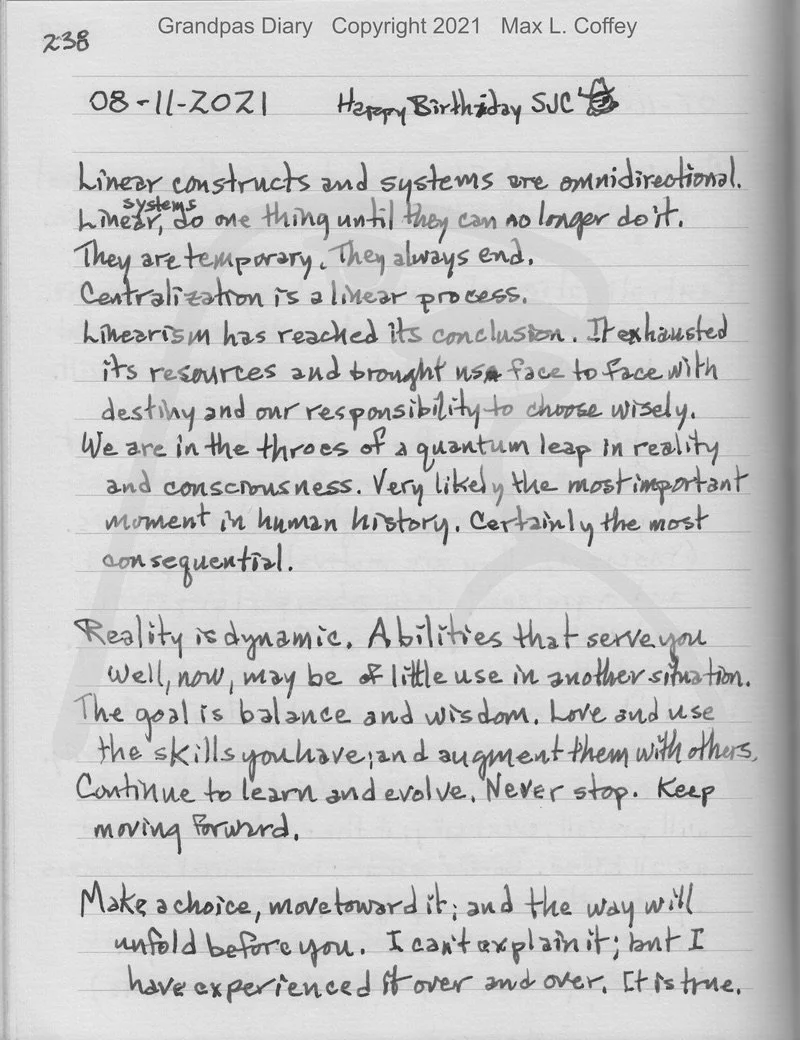 Grandpas Diary Copyright 2021 Max L. Coffey
238
08-11-2021 Happy Birthday SJC
Linear constructs and systems are omnidirectional.
Linear, systems do one thing until they can no longer do it.
They are temporary. They always end.
Centralization is a linear process.
Linearism has reached its conclusion. It exhausted
its resources and brought us face to face with
destiny and our responsibility to choose wisely.
We are in the throes of a quantum leap in reality
and consciousness. Very likely the most important
moment in human history. Certainly the most
consequential.
Reality is dynamic. Abilities that serve you
well, now, may be of little use in another situation.
The goal is balance and wisdom. Love and use
the skills you have; and augment them with others.
Continue to learn and evolve. Never stop. Keep
moving forward.
Make a choice, move toward it; and the way will
unfold before you. I can't explain it; but I
have experienced it over and over. It is true.